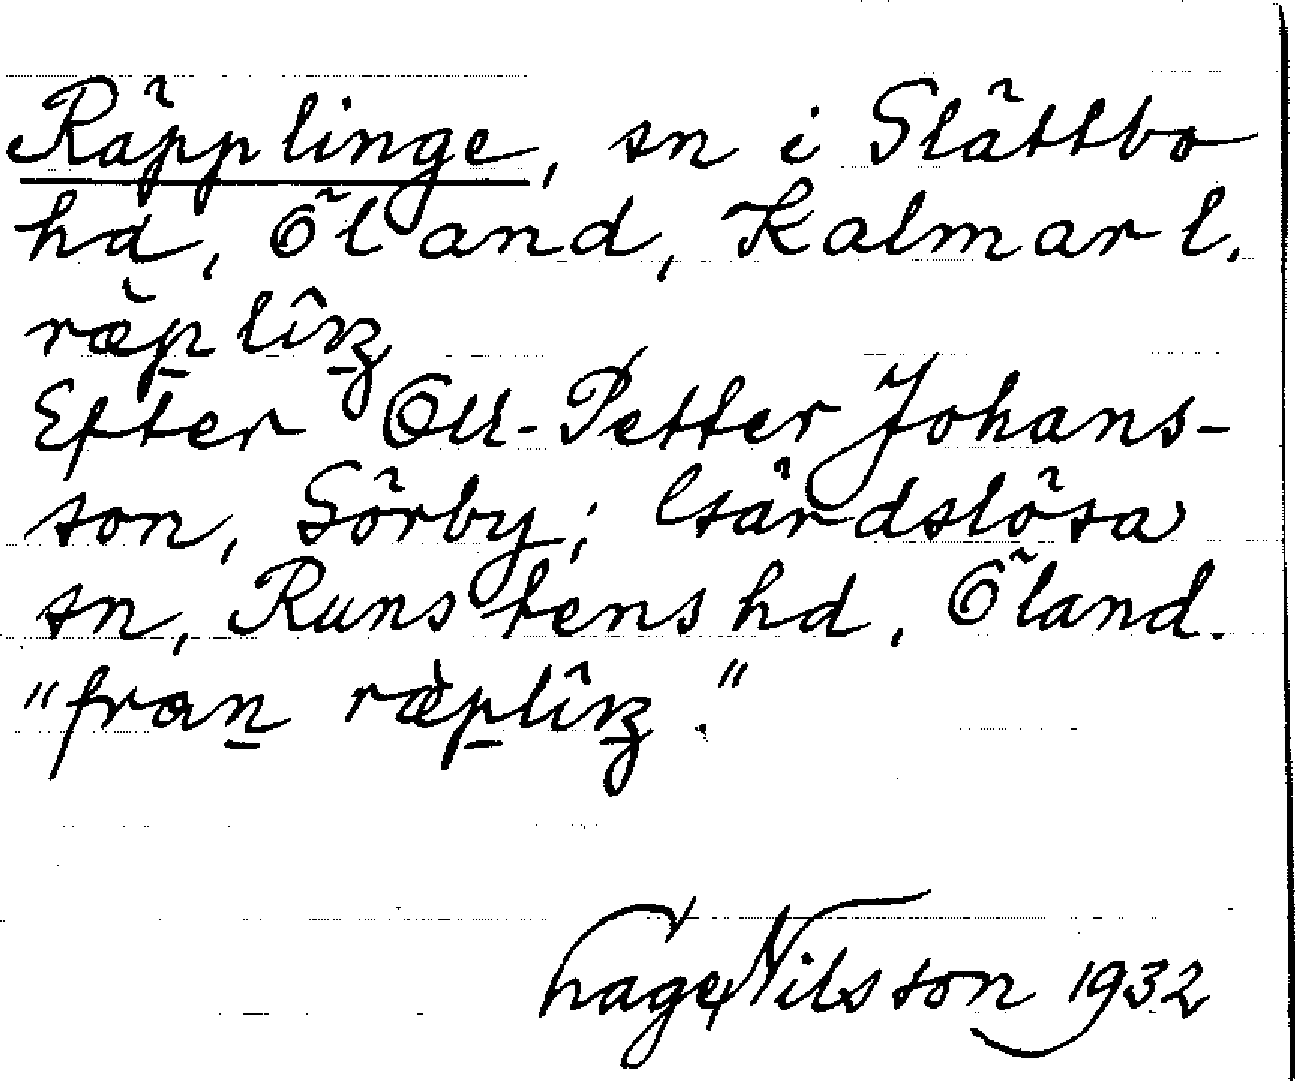 Räpplinge, sn i Slättbo
hd, Öland, Kalmar l.
ræ̀plîŋ
Efter Oll-Petter Johans-
son, Sörby; Gärdslösa
sn, Runstens hd, Öland.
"fran ræ̀plîŋ."
hage Nilsson 1932